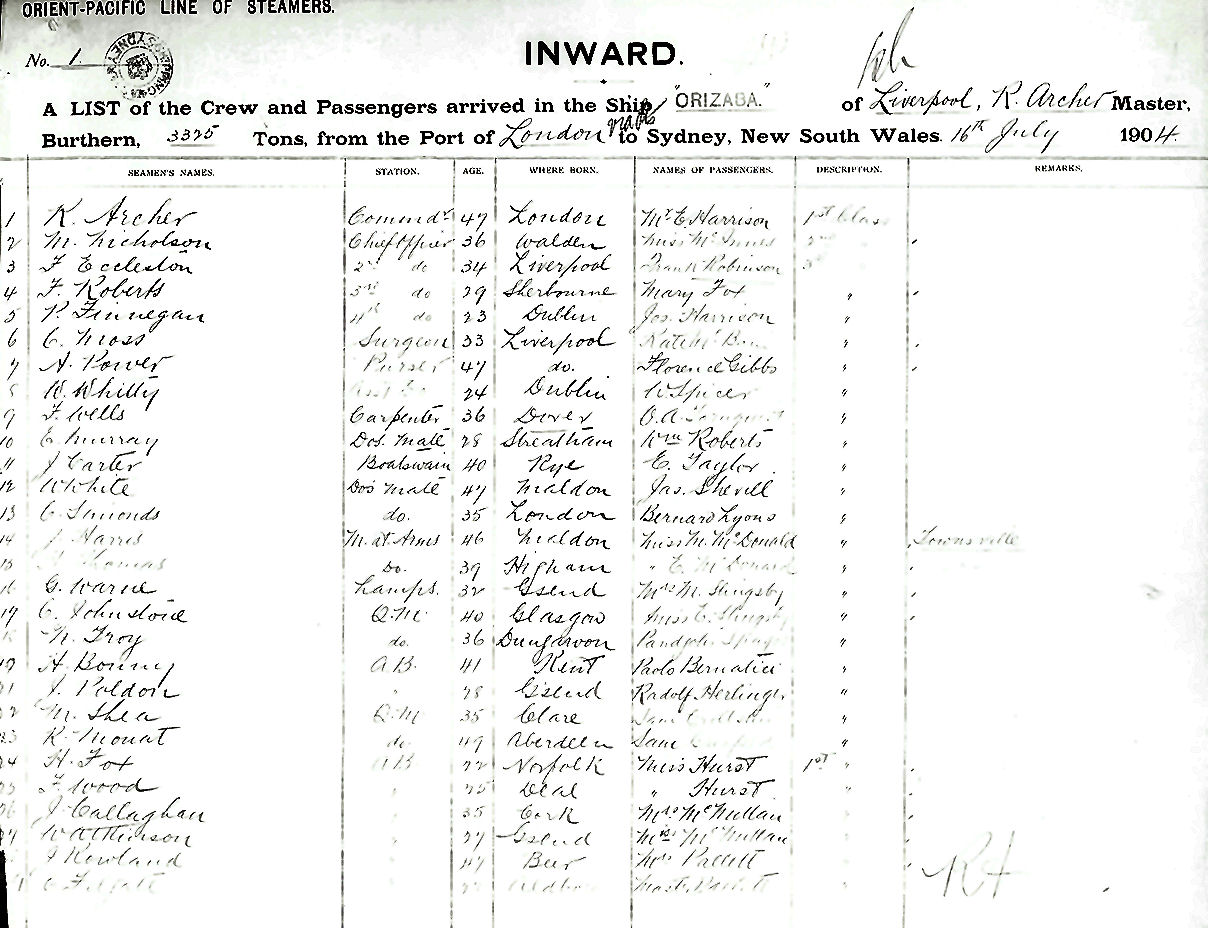 ORIENT-PACIFIC LINE OF STEAMERS.
No. 1.
INWARD.
A LIST of the Crew and Passengers arrived in the Ship "ORIZABA." of Liverpool, R. Archer Master,
Burthern, 3395 Tons, from the Port of London to Sydney, New South Wales. 16th July 1904.
SEAMEN'S NAMES. STATION. AGE. WHERE BORN. NAMES OF PASSENGERS. DESCRIPTION. REMARKS.
1 R. Archer Commdr 47 London Mr E Harrison 1st Class
2 M. Nicholson Chief Officer 36 Walden Miss 2nd
3 F Eccleston 2nd do 34 Liverpool Frank Robinson 3rd
4 F. Roberts 3rd do 29 Sherbourne Mary Fox "
5 P. Finnegan 4th do 23 Dublin Jos. Harrison "
6 C. Moss Surgeon 33 Liverpool "
7 A. Power Purser 47 do. Florence Gibbs "
8 W. Whitty 24 Dublin W Spicer "
9 F. Wells Carpenter 36 Dover O.A. "
10 E. Murray Dos. Mate 28 Streatham Wm Roberts "
11 J Carter Boatswain 40 Rye E. Taylor "
12 W White Dos Mate 47 Maldon Jas. Shevill "
13 C. Simonds do. 35 London Bernard Lyons "
14 J. Harris M. at Arms 46 Maldon Miss M. McDonald " Townsville
15 Thomas Do. 39 Higham " E. McDonald "
16 G. Warne Lamps. 32 Gsend Mrs M. Slingsby "
17 C. Johnstone Q.M. 40 Glasgow Miss E. Slingsby "
N. Troy do. 36 Dungarvon "
19 H. Bonny A.B. 41 Kent Paolo Bernatici "
21 J. Poldon " 28 Gsend Radolf Herlinger "
22 M. Shea Q.M 35 Clare Sam "
23 R. Mouat do 49 Aberdeen Sam "
24 H. Fox A B 22 Norfolk Miss Hurst 1st "
25 F. Wood " 25 Deal " Hurst "
26 J. Callaghan " 35 Cork Mrs McMillan "
27 W Atkinson " 27 Gsend Miss McMillan "
J Rowland " 47 Beer Mrs Pallett "
Master Pallett "